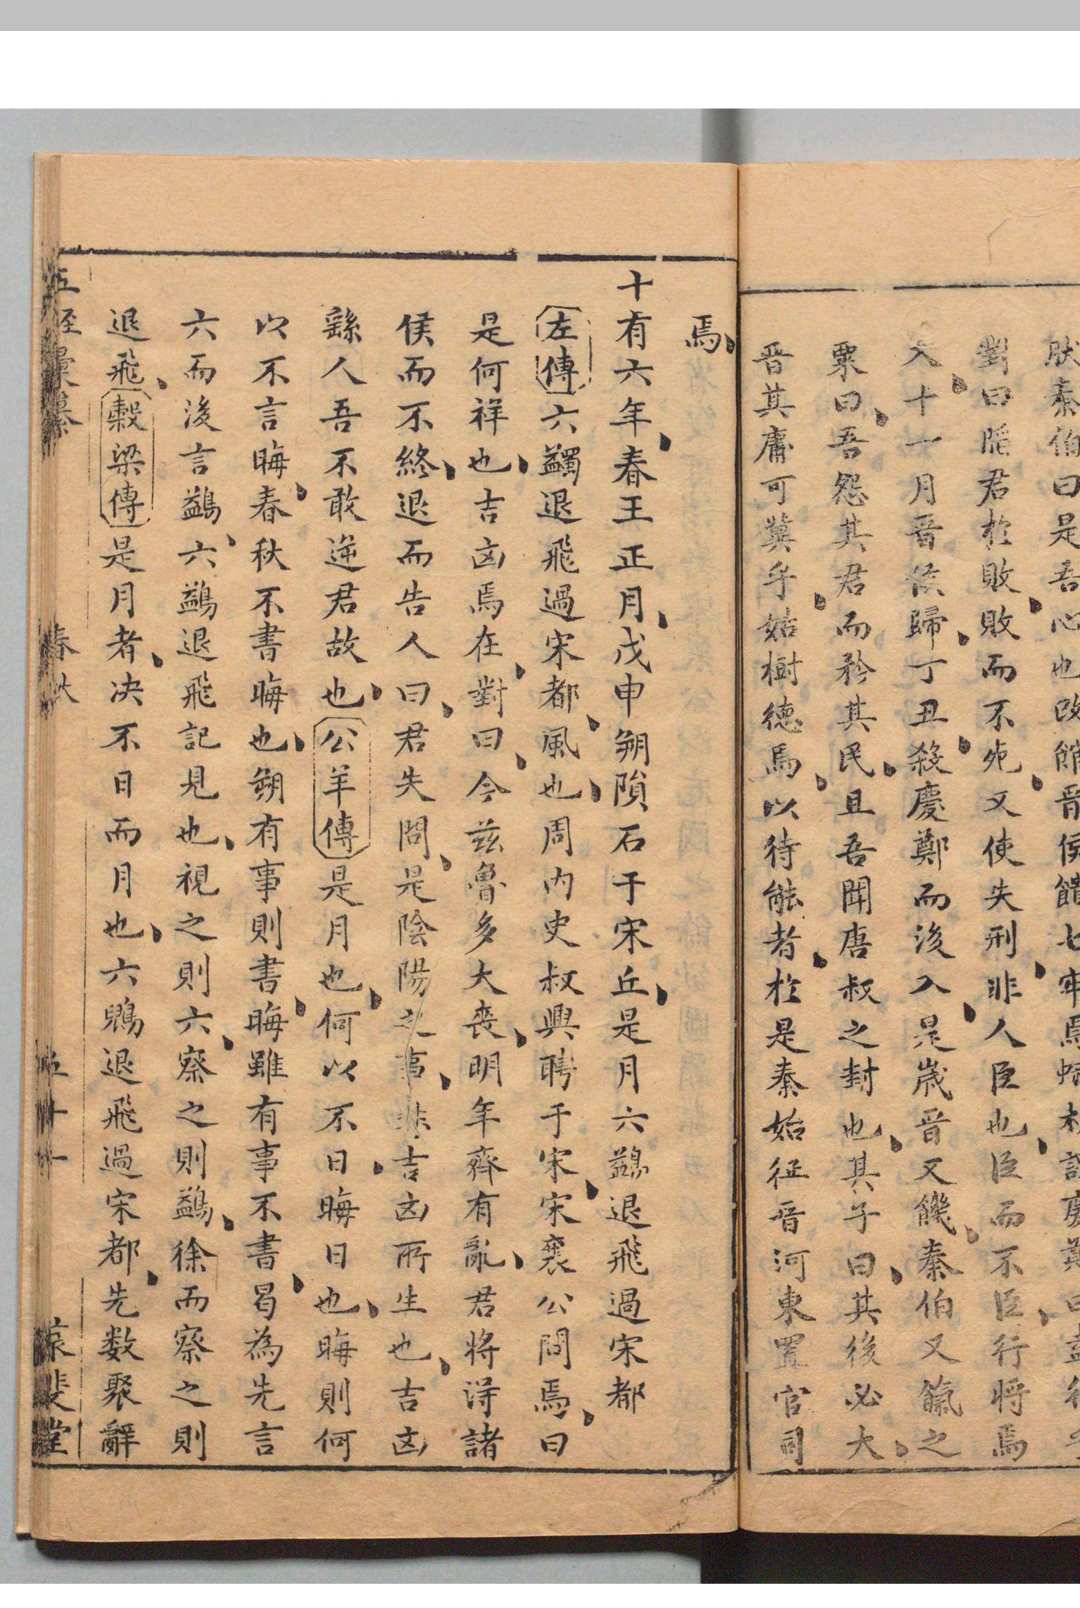 狀秦伯曰是吾心也改館晉侯饋七牢焉蛾析謂慶鄭曰盍行乎
對曰䧟君於敗敗而不死又使失刑非人臣也臣而不臣行將焉
入十一月晉侯歸丁丑殺慶鄭而後入是歲晉又饑秦伯又餼之
粟曰吾怨其君而矜其民且吾聞唐叔之封也其子曰其後必大
晉其庸可冀乎姑樹德焉以待能者於是秦始征晉河東置官司
焉
十有六年春王正月戊申朔隕石于宋丘是月六鷁退飛過宋都
左傳六鷁退飛過宋都風也周内史叔興聘于宋宋襄公問焉曰
是何祥也吉凶焉在對曰今兹魯多大喪明年齊有亂君將得諸
侯而不終退而告人曰君失問是陰陽之事非吉凶所生也吉凶
繇人吾不敢逆君故也公羊傳是月也何以不日晦日也晦則何
以不言晦春秋不書晦也朔有事則書晦雖有事不書曷為先言
六而後言鷁六鷁退飛記見也視之則六察之則鷁徐而察之則
退飛榖梁傳是月者决不日而月也六鶂退飛過宋都先数聚辭
五經彙纂
春秋
五十一
斐堂